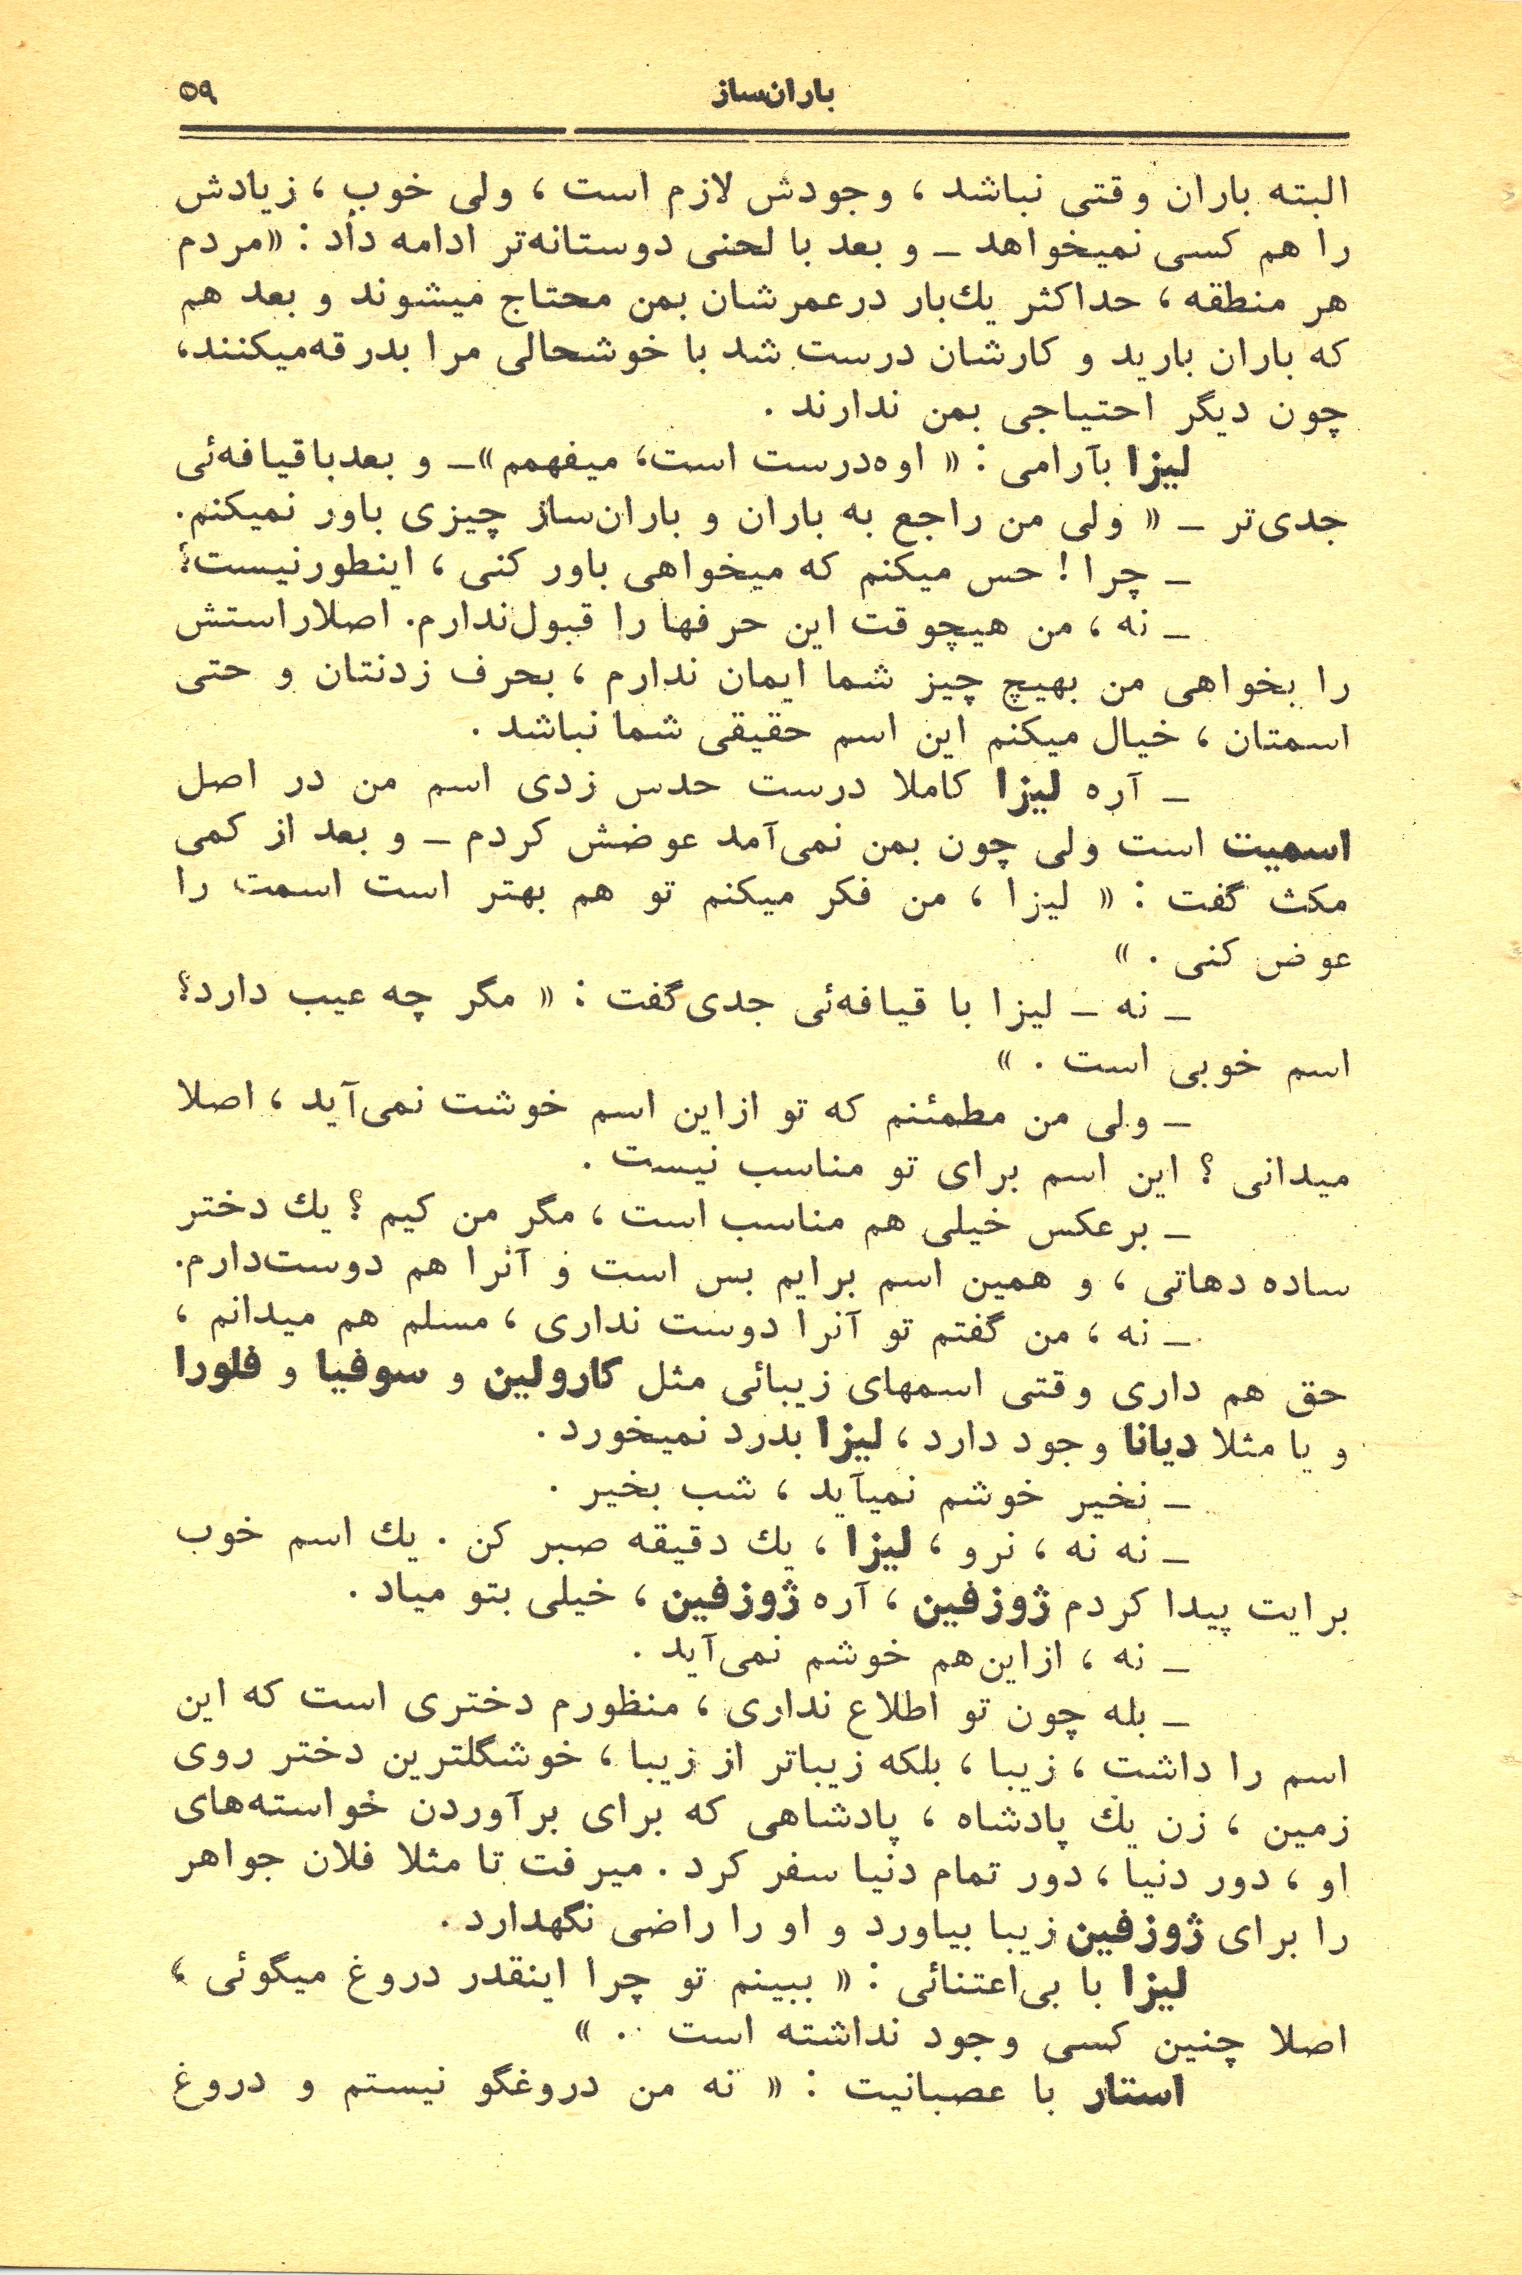 باران‌ساز ۵۹
البته باران وقتی نباشد ، وجودش لازم است ، ولی خوب ، زیادش
را هم کسی نمیخواهد ــ و بعد با لحنی دوستانه‌تر ادامه داد : «مردم
هر منطقه ، حداکثر یك‌بار درعمرشان بمن محتاج میشوند و بعد هم
که باران بارید و کارشان درست شد با خوشحالی مرا بدرقه‌میکنند،
چون دیگر احتیاجی بمن ندارند .
لیزا بآرامی : « اوه‌درست است، میفهمم »ــ و بعدباقیافه‌ئی
جدی‌تر ــ « ولی من راجع به باران و باران‌ساز چیزی باور نمیکنم.
ــ چرا ! حس میکنم که میخواهی باور کنی ، اینطورنیست؟
ــ نه ، من هیچوقت این حرفها را قبول‌ندارم. اصلاراستش
را بخواهی من بهیچ چیز شما ایمان ندارم ، بحرف زدنتان و حتی
اسمتان ، خیال میکنم این اسم حقیقی شما نباشد .
ــ آره لیزا کاملا درست حدس زدی اسم من در اصل
اسمیت است ولی چون بمن نمی‌آمد عوضش کردم ــ و بعد از کمی
مکث گفت : « لیزا ، من فکر میکنم تو هم بهتر است اسمت را
عوض کنی . »
ــ نه ــ لیزا با قیافه‌ئی جدی‌گفت : « مگر چه عیب دارد؟
اسم خوبی است . »
ــ ولی من مطمئنم که تو ازاین اسم خوشت نمی‌آید ، اصلا
میدانی ؟ این اسم برای تو مناسب نیست .
ــ برعکس خیلی هم مناسب است ، مگر من کیم ؟ یك دختر
ساده دهاتی ، و همین اسم برایم بس است و آنرا هم دوست‌دارم.
ــ نه ، من گفتم تو آنرا دوست نداری ، مسلم هم میدانم ،
حق هم داری وقتی اسمهای زیبائی مثل کارولین و سوفیا و فلورا
و یا مثلا دیانا وجود دارد ، لیزا بدرد نمیخورد .
ــ نخیر خوشم نمیآید ، شب بخیر .
ــ نه نه ، نرو ، لیزا ، یك دقیقه صبر کن . یك اسم خوب
برایت پیدا کردم ژوزفین ، آره ژوزفین ، خیلی بتو میاد .
ــ نه ، ازاین‌هم خوشم نمی‌آید .
ــ بله چون تو اطلاع نداری ، منظورم دختری است که این
اسم را داشت ، زیبا ، بلکه زیباتر از زیبا ، خوشگلترین دختر روی
زمین ، زن یك پادشاه ، پادشاهی که برای برآوردن خواسته‌های
او ، دور دنیا ، دور تمام دنیا سفر کرد . میرفت تا مثلا فلان جواهر
را برای ژوزفین زیبا بیاورد و او را راضی نگهدارد .
لیزا با بی‌اعتنائی : « ببینم تو چرا اینقدر دروغ میگوئی ،
اصلا چنین کسی وجود نداشته است .. »
استار با عصبانیت : « نه من دروغگو نیستم و دروغ